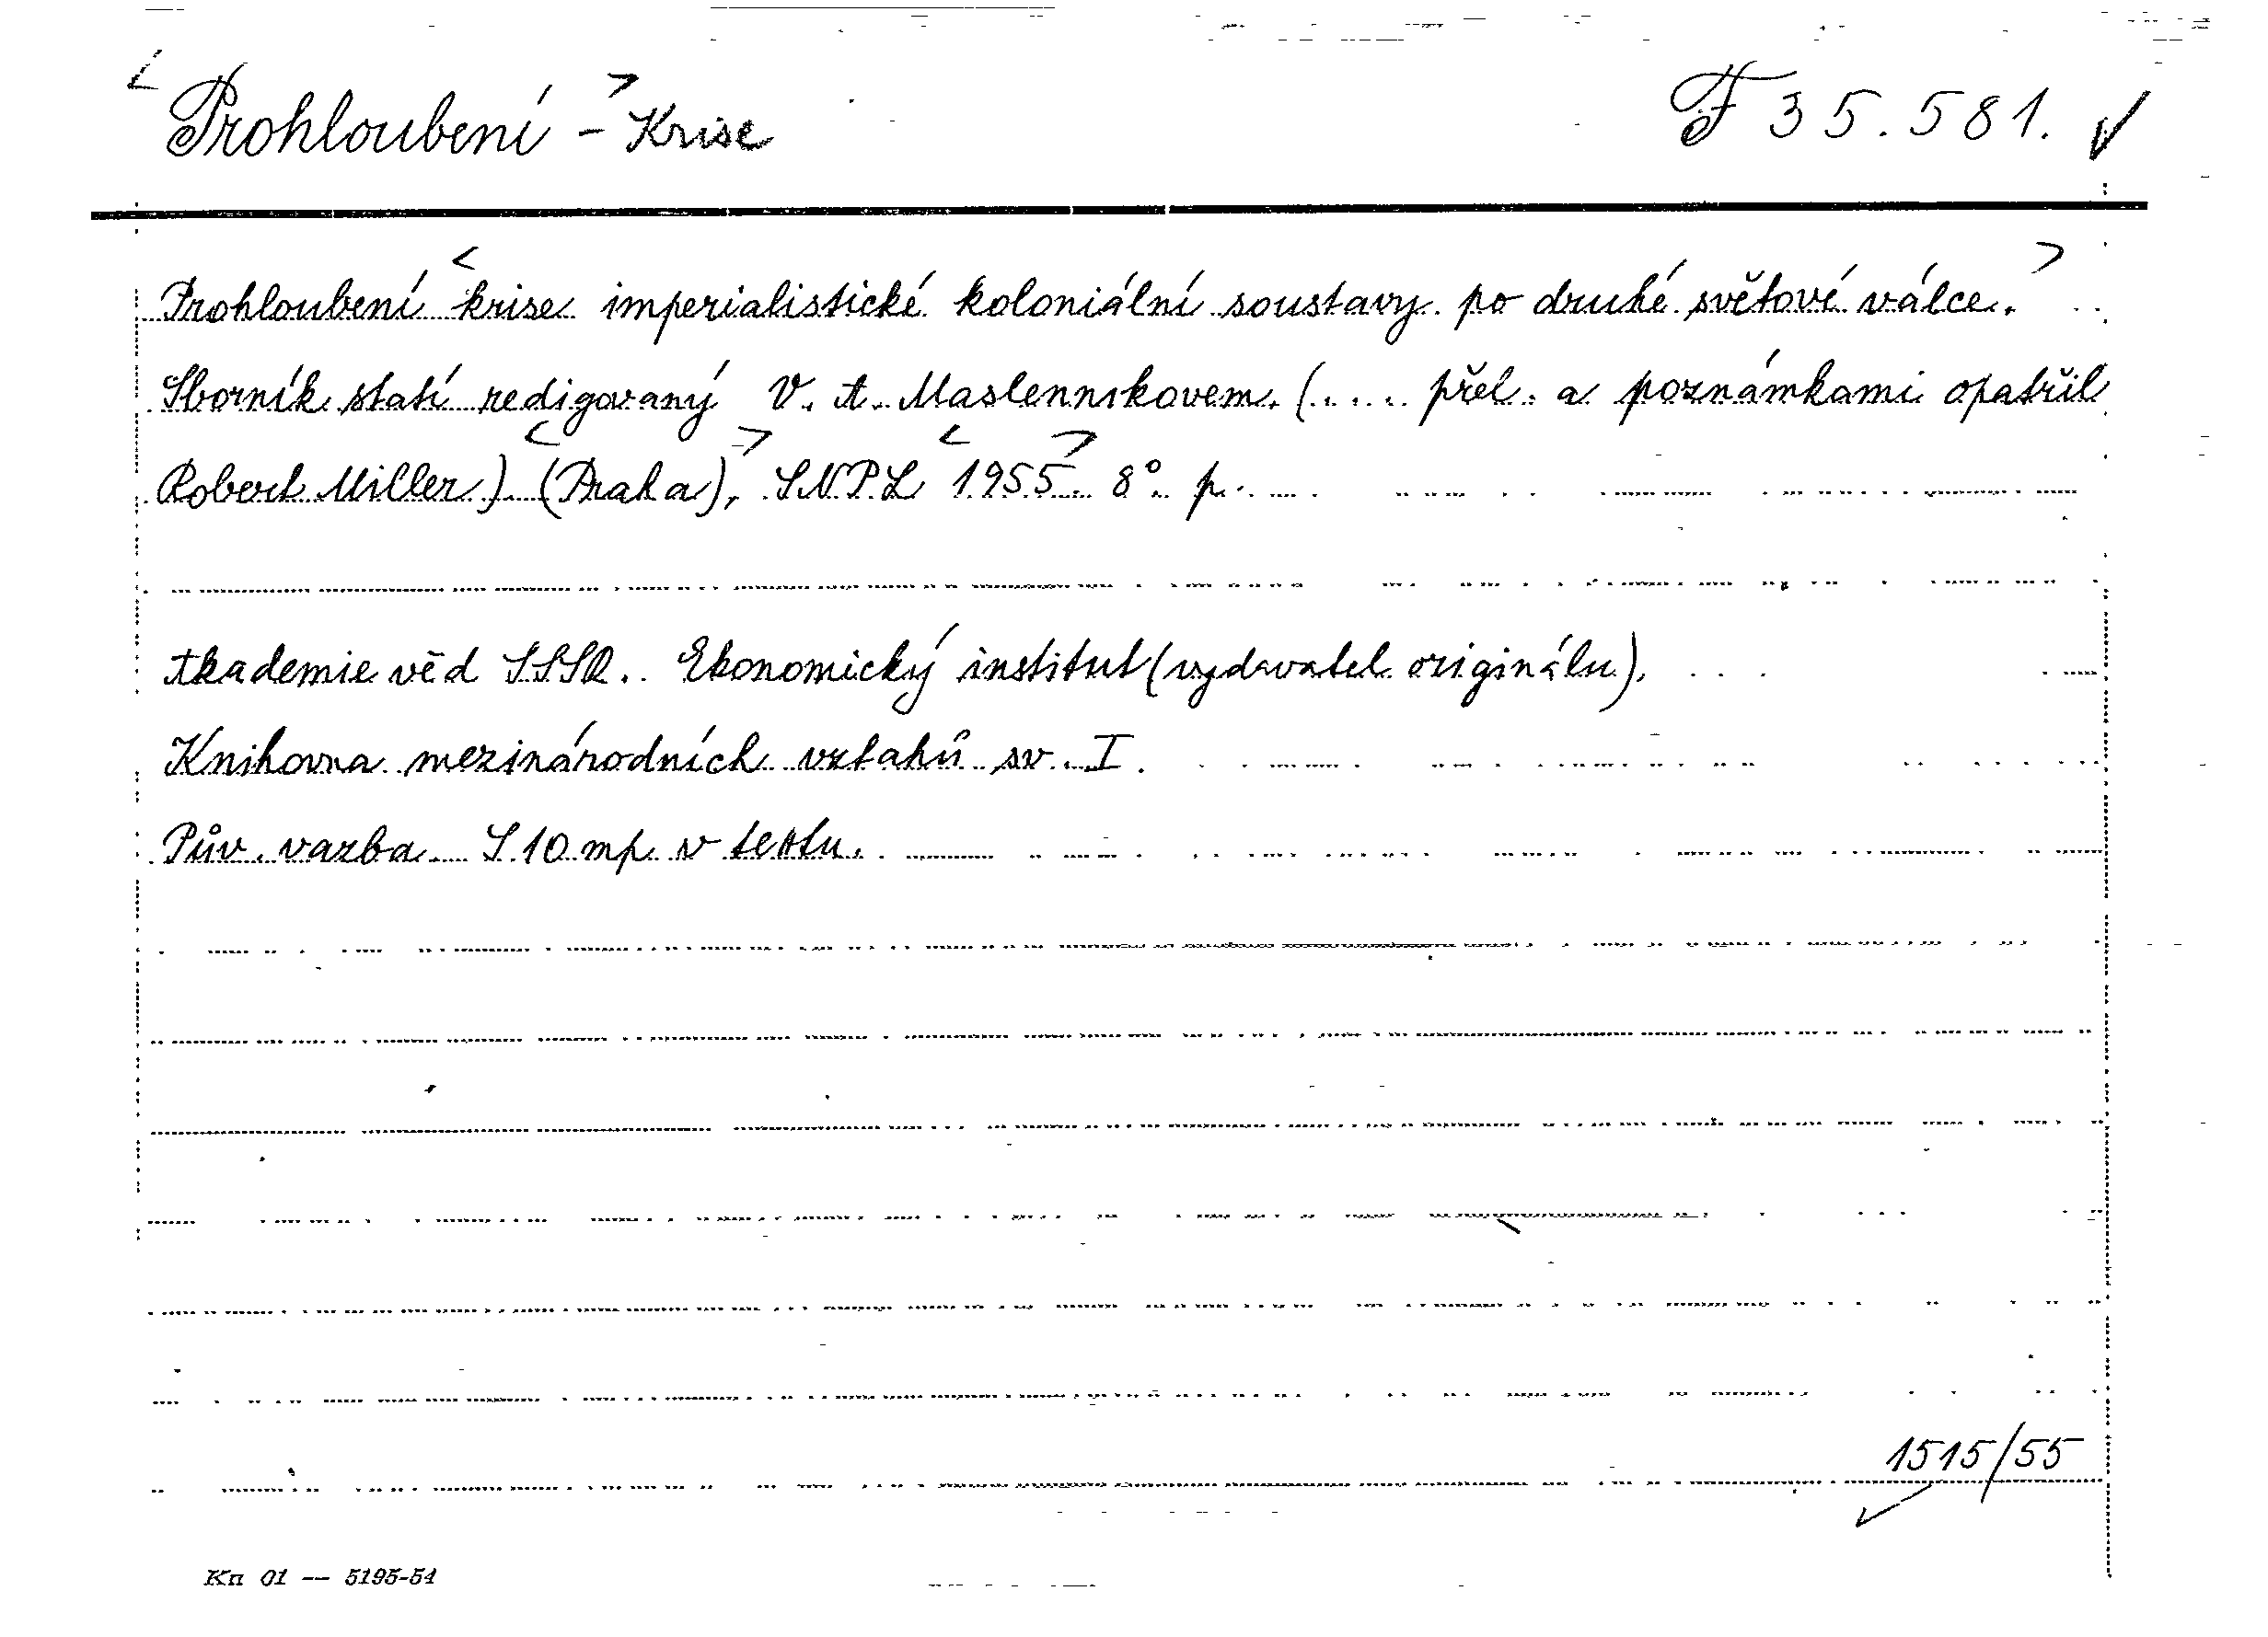 < Prohloubení > - Krise F 35.581. ✓
Prohloubení < krise imperialistické koloniální soustavy po druhé světové válce. >
Sborník statí redigovaný V. A. Maslennikovem. (..... přel. a poznámkami opatřil
Robert Miller) (< Praha >), SNPL < 1955 > 8° p.
Akademie věd SSSR. Ekonomický institut (vydavatel originálu).
Knihovna mezinárodních vztahů sv. I.
Pův. vazba S 10 mp. v textu.
1515/55
Kn 01 — 5195-54